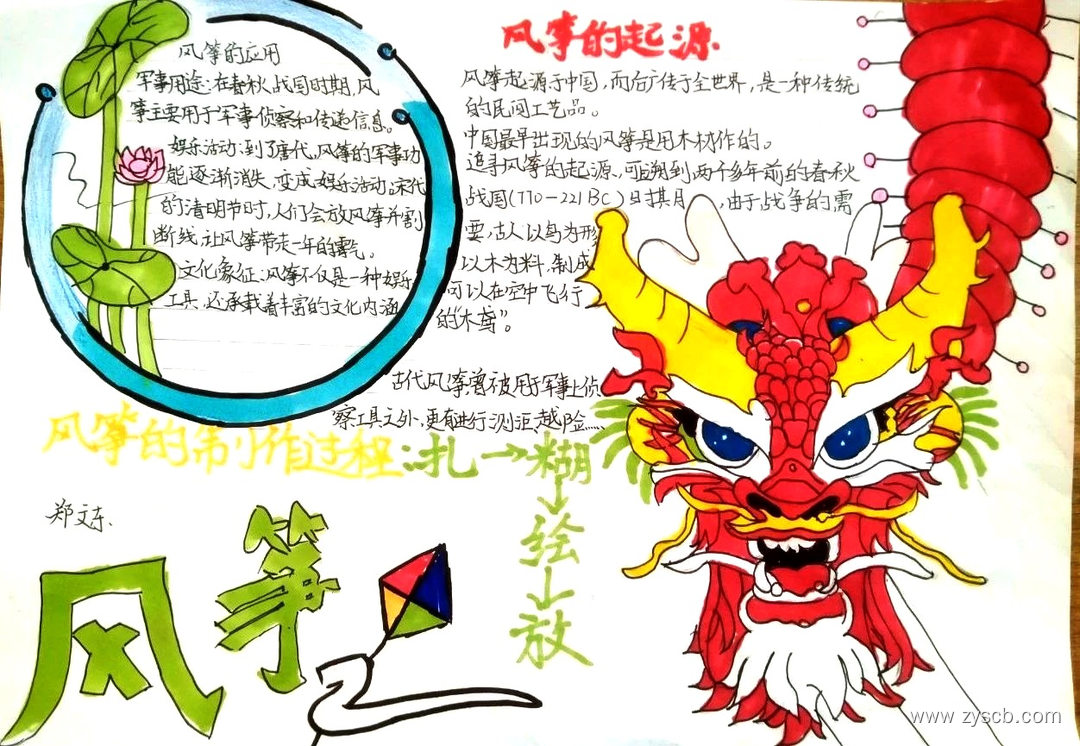 风筝的应用
军事用途:在春秋战国时期,风
筝主要用于军事侦察和传递信息。
娱乐活动:到了唐代,风筝的军事功
能逐渐消失,变成娱乐活动。宋代
的清明节时,人们会放风筝并割
断线,让风筝带走一年的霉气。
文化象征:风筝不仅是一种娱乐
工具,还承载着丰富的文化内涵
风筝的起源
风筝起源于中国,而后广传于全世界,是一种传统
的民间工艺品。
中国最早出现的风筝是用木材作的。
追寻风筝的起源,可追溯到两千多年前的春秋
战国(770-221BC)日 月,由于战争的需
要,古人以鸟为形
以木为料,制成
可以在空中飞行
的“木鸢”。
古代风筝,曾被用于军事上侦
察工具之外,更有进行测距越险……
风筝的制作过程:扎→糊
↓
绘
↓
放
郑文东
风筝
www.zyscb.com